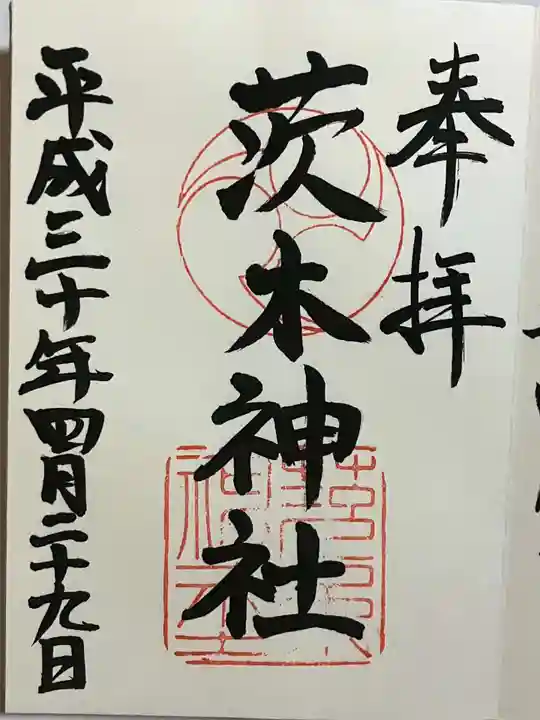 奉拝
茨木神社
平成三十年四月二十九日